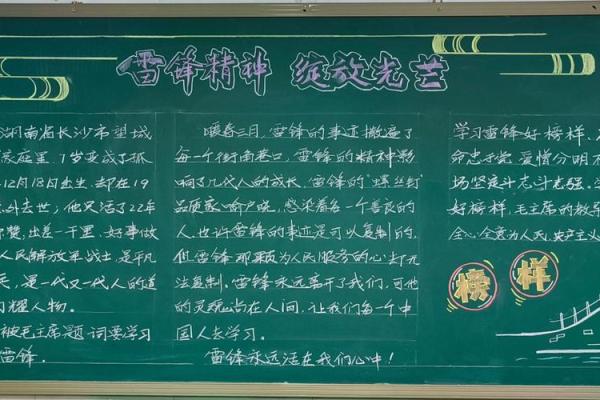 雷锋精神 绽放光芒
湖南省长沙市望城
庭里.7岁变成了孤
12月18日出生.却在19
外去世;他又活了22年
赞,出差一千里.好事做
人民解放军战士,是平凡
兵,是一代又一代人的道
耀人物.
被毛主席题词要学习
雷锋.
暖春三月,雷锋的事迹撒遍了
每一个街南巷口,雷锋的精神影
响了几代人的成长,雷锋的"螺丝钉"
品质家喻户晓,感染着每一个善良的
人.也许雷锋的事迹是可以复制的,
但雷锋那颗为人民服务的心却无
法复制.雷锋永远离开了我们,可他
的灵魂尚在人间,让我们每一个中
国人去学习.
雷锋永远活在我们心中!
学习雷锋好榜样,
命忠于党.爱憎分明不
场坚定斗志斗志强.学
好榜样,毛主席的教导
全心全意为人民,共产主义
榜样